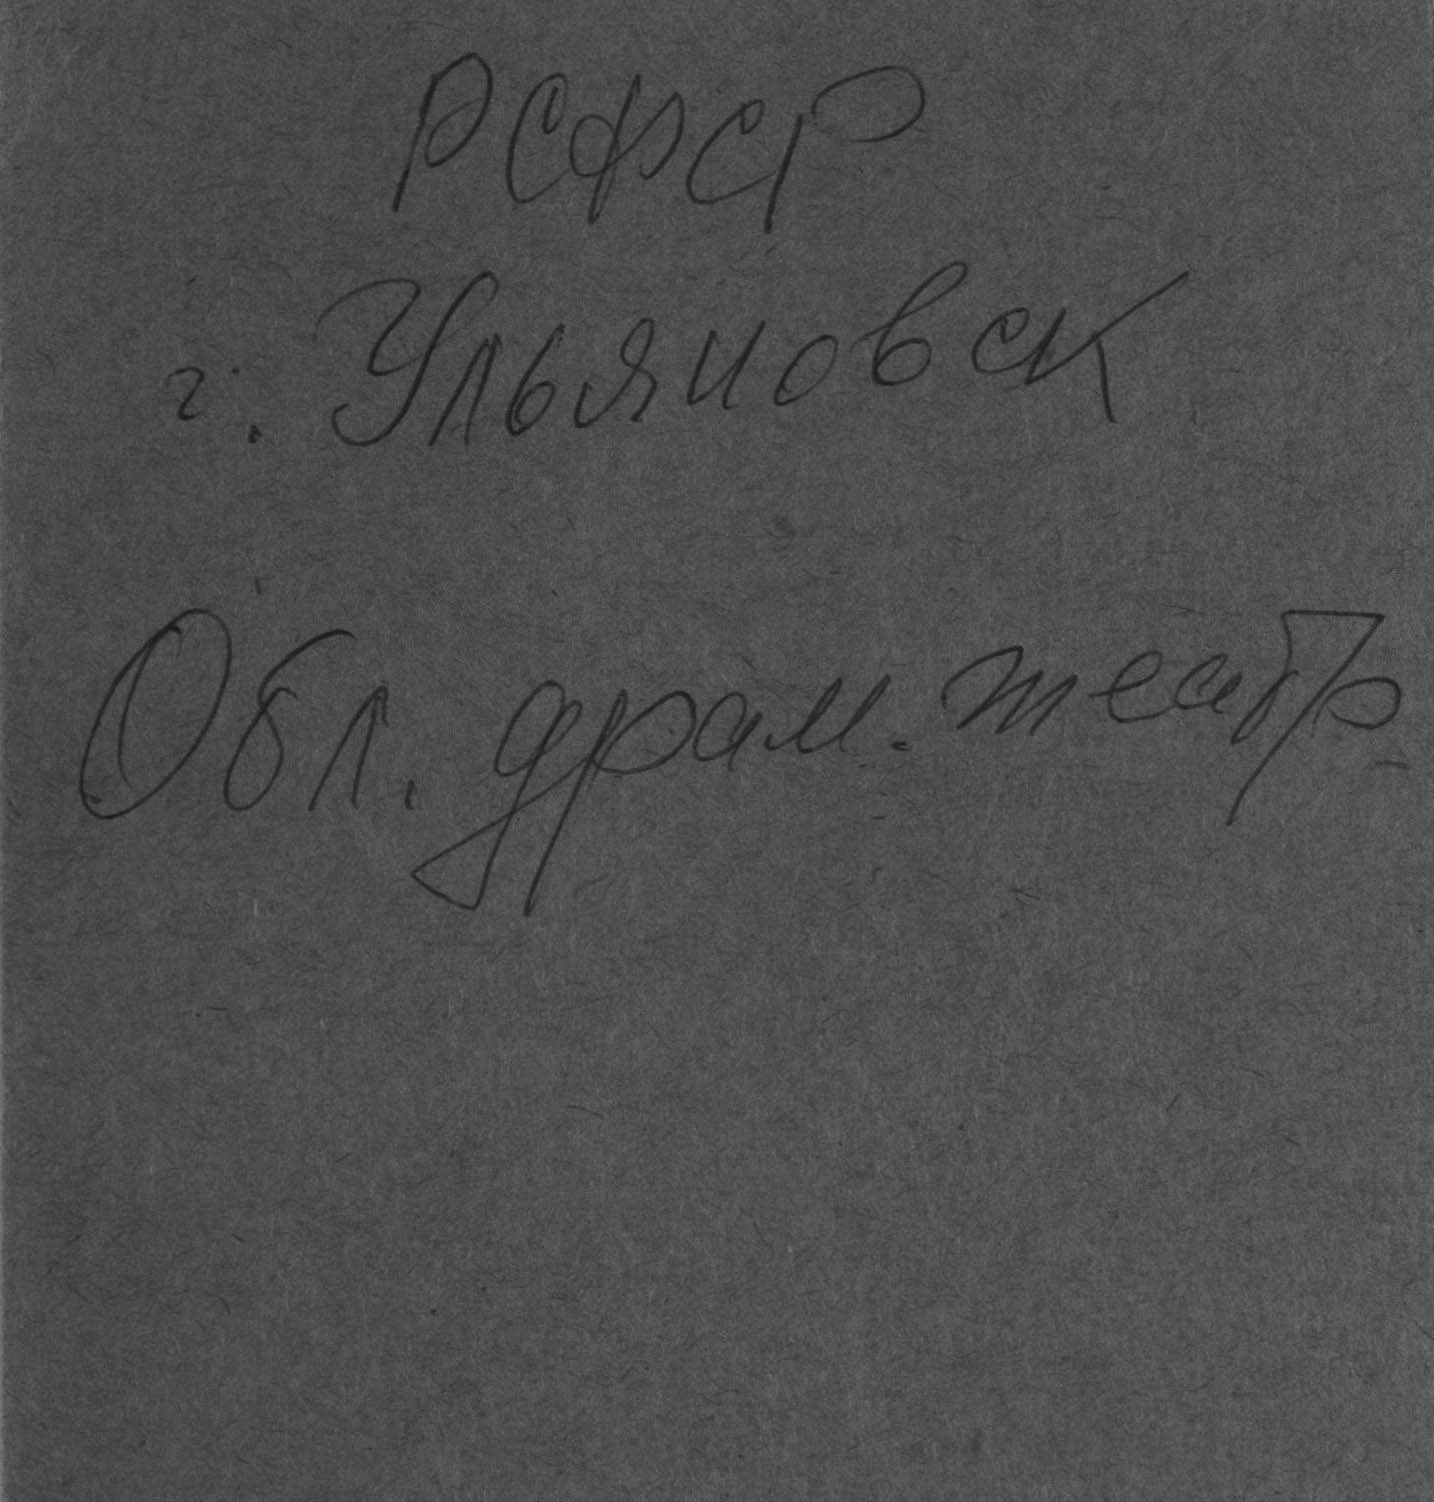 РСФСР
г. Ульяновск
Обл. драм. театр